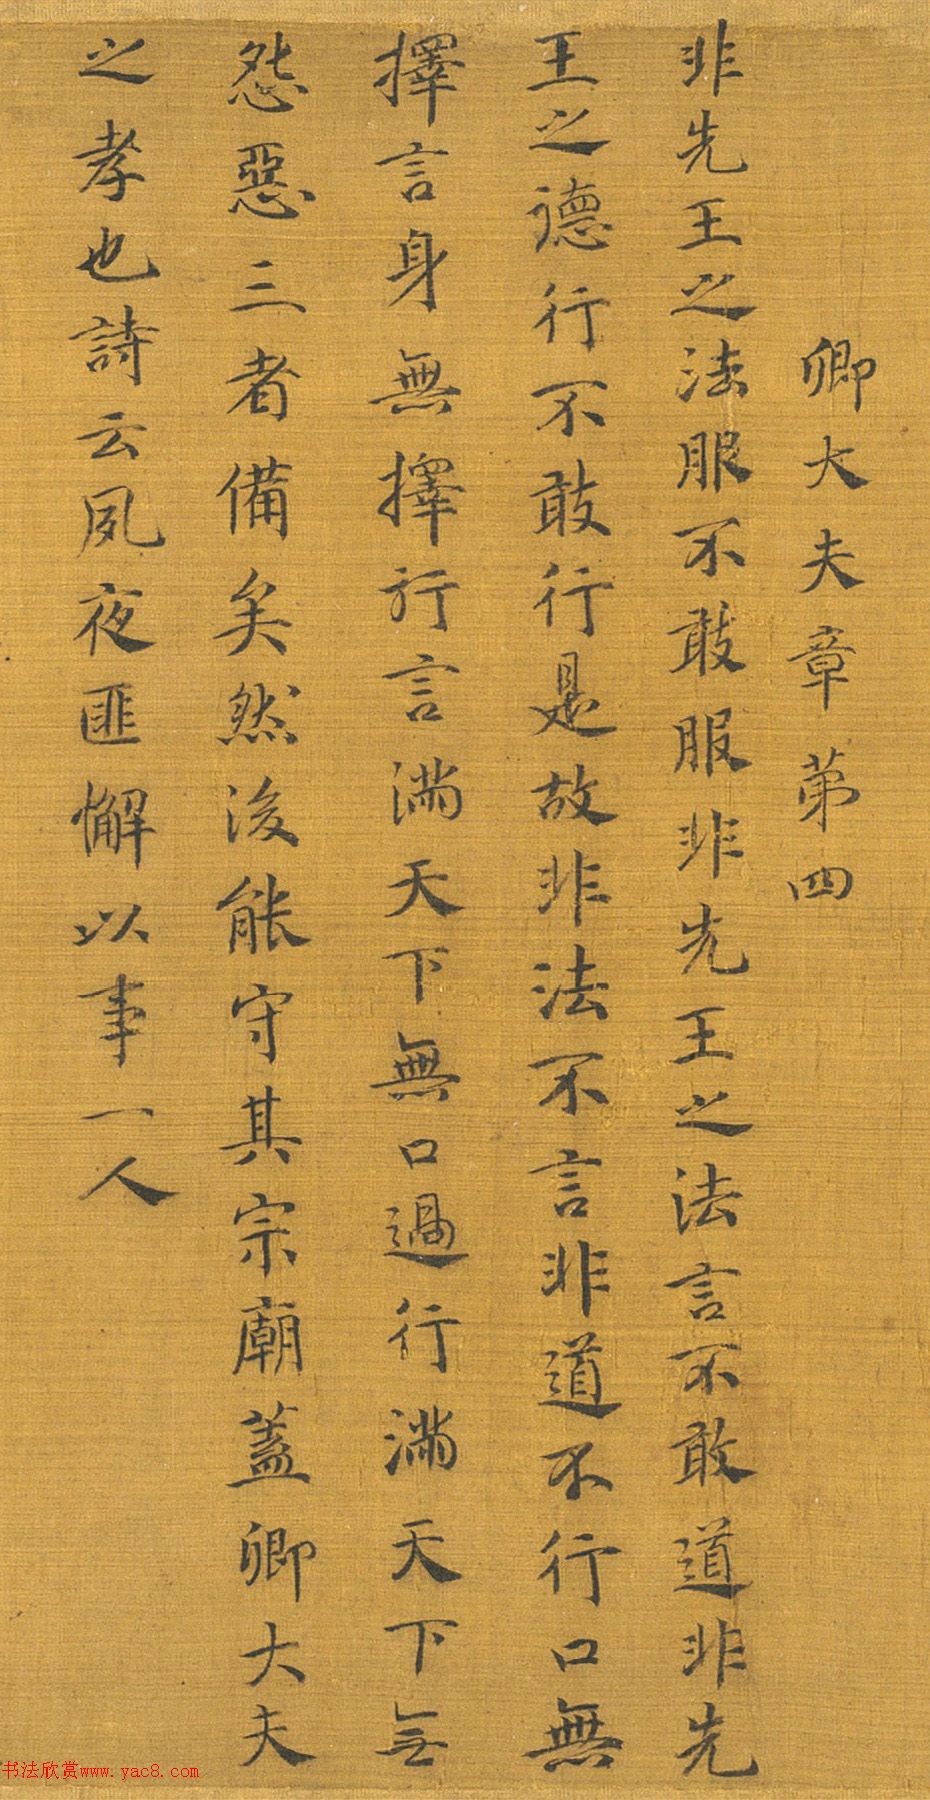 卿大夫章第四
非先王之法服不敢服非先王之法言不敢道非先
王之德行不敢行是故非法不言非道不行口無
擇言身無擇行言满天下無口過行满天下無
怨惡三者備矣然後能守其宗廟蓋卿大夫
之孝也詩云夙夜匪懈以事一人
书法欣赏www.yac8.com